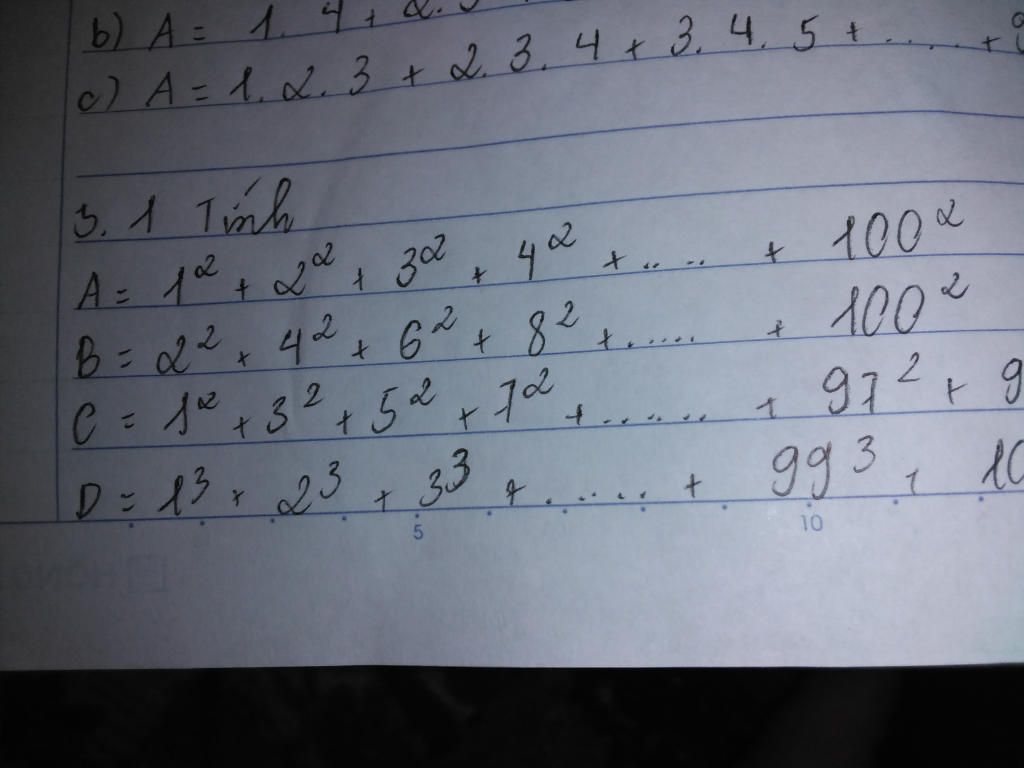 b) A = 1. 4 + 2.
c) A = 1. 2. 3 + 2. 3. 4 + 3. 4. 5 + .... +
3. 1 Tính
A = 1² + 2² + 3² + 4² + ..... + 100²
B = 2² + 4² + 6² + 8² + ...... + 100²
C = 1² + 3² + 5² + 7² + ....... + 97² + 9
D = 1³ + 2³ + 3³ + ...... + 99³ + 10
5 10